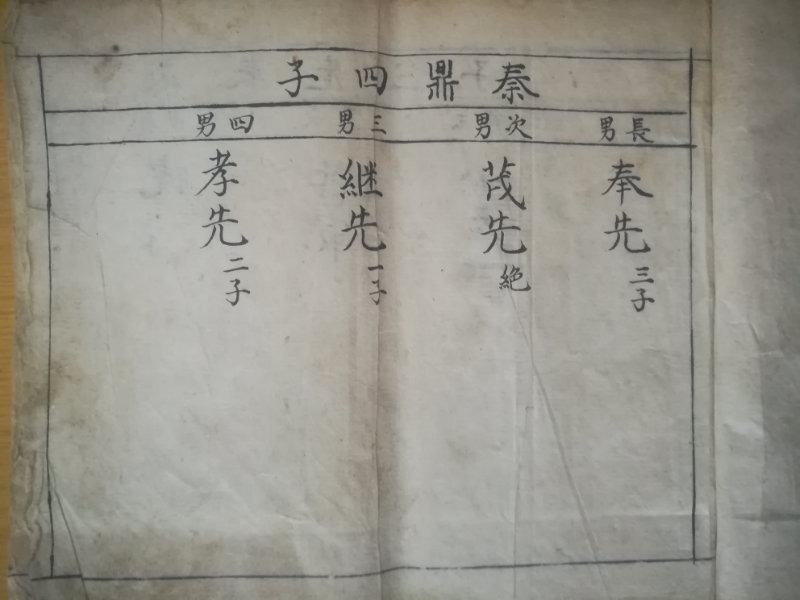 秦鼎四子
長男
奉先 三子
次男
茂先 絶
三男
継先 一子
四男
孝先 二子